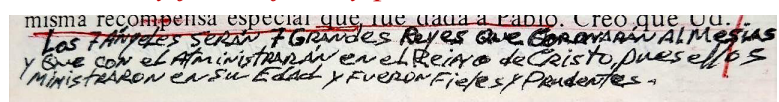 misma recompensa especial que fue dada a Pablo. Creo que Ud.
Los 7 Ángeles SERÁN 7 GRANDES Reyes QUE CORONARÁN AL MESIAS
y QUE CON el AdMINISTRARÁN en el Reino de Cristo, pues ellos
MINISTRARON en Su EDAD y FUERON Fieles y Prudentes.